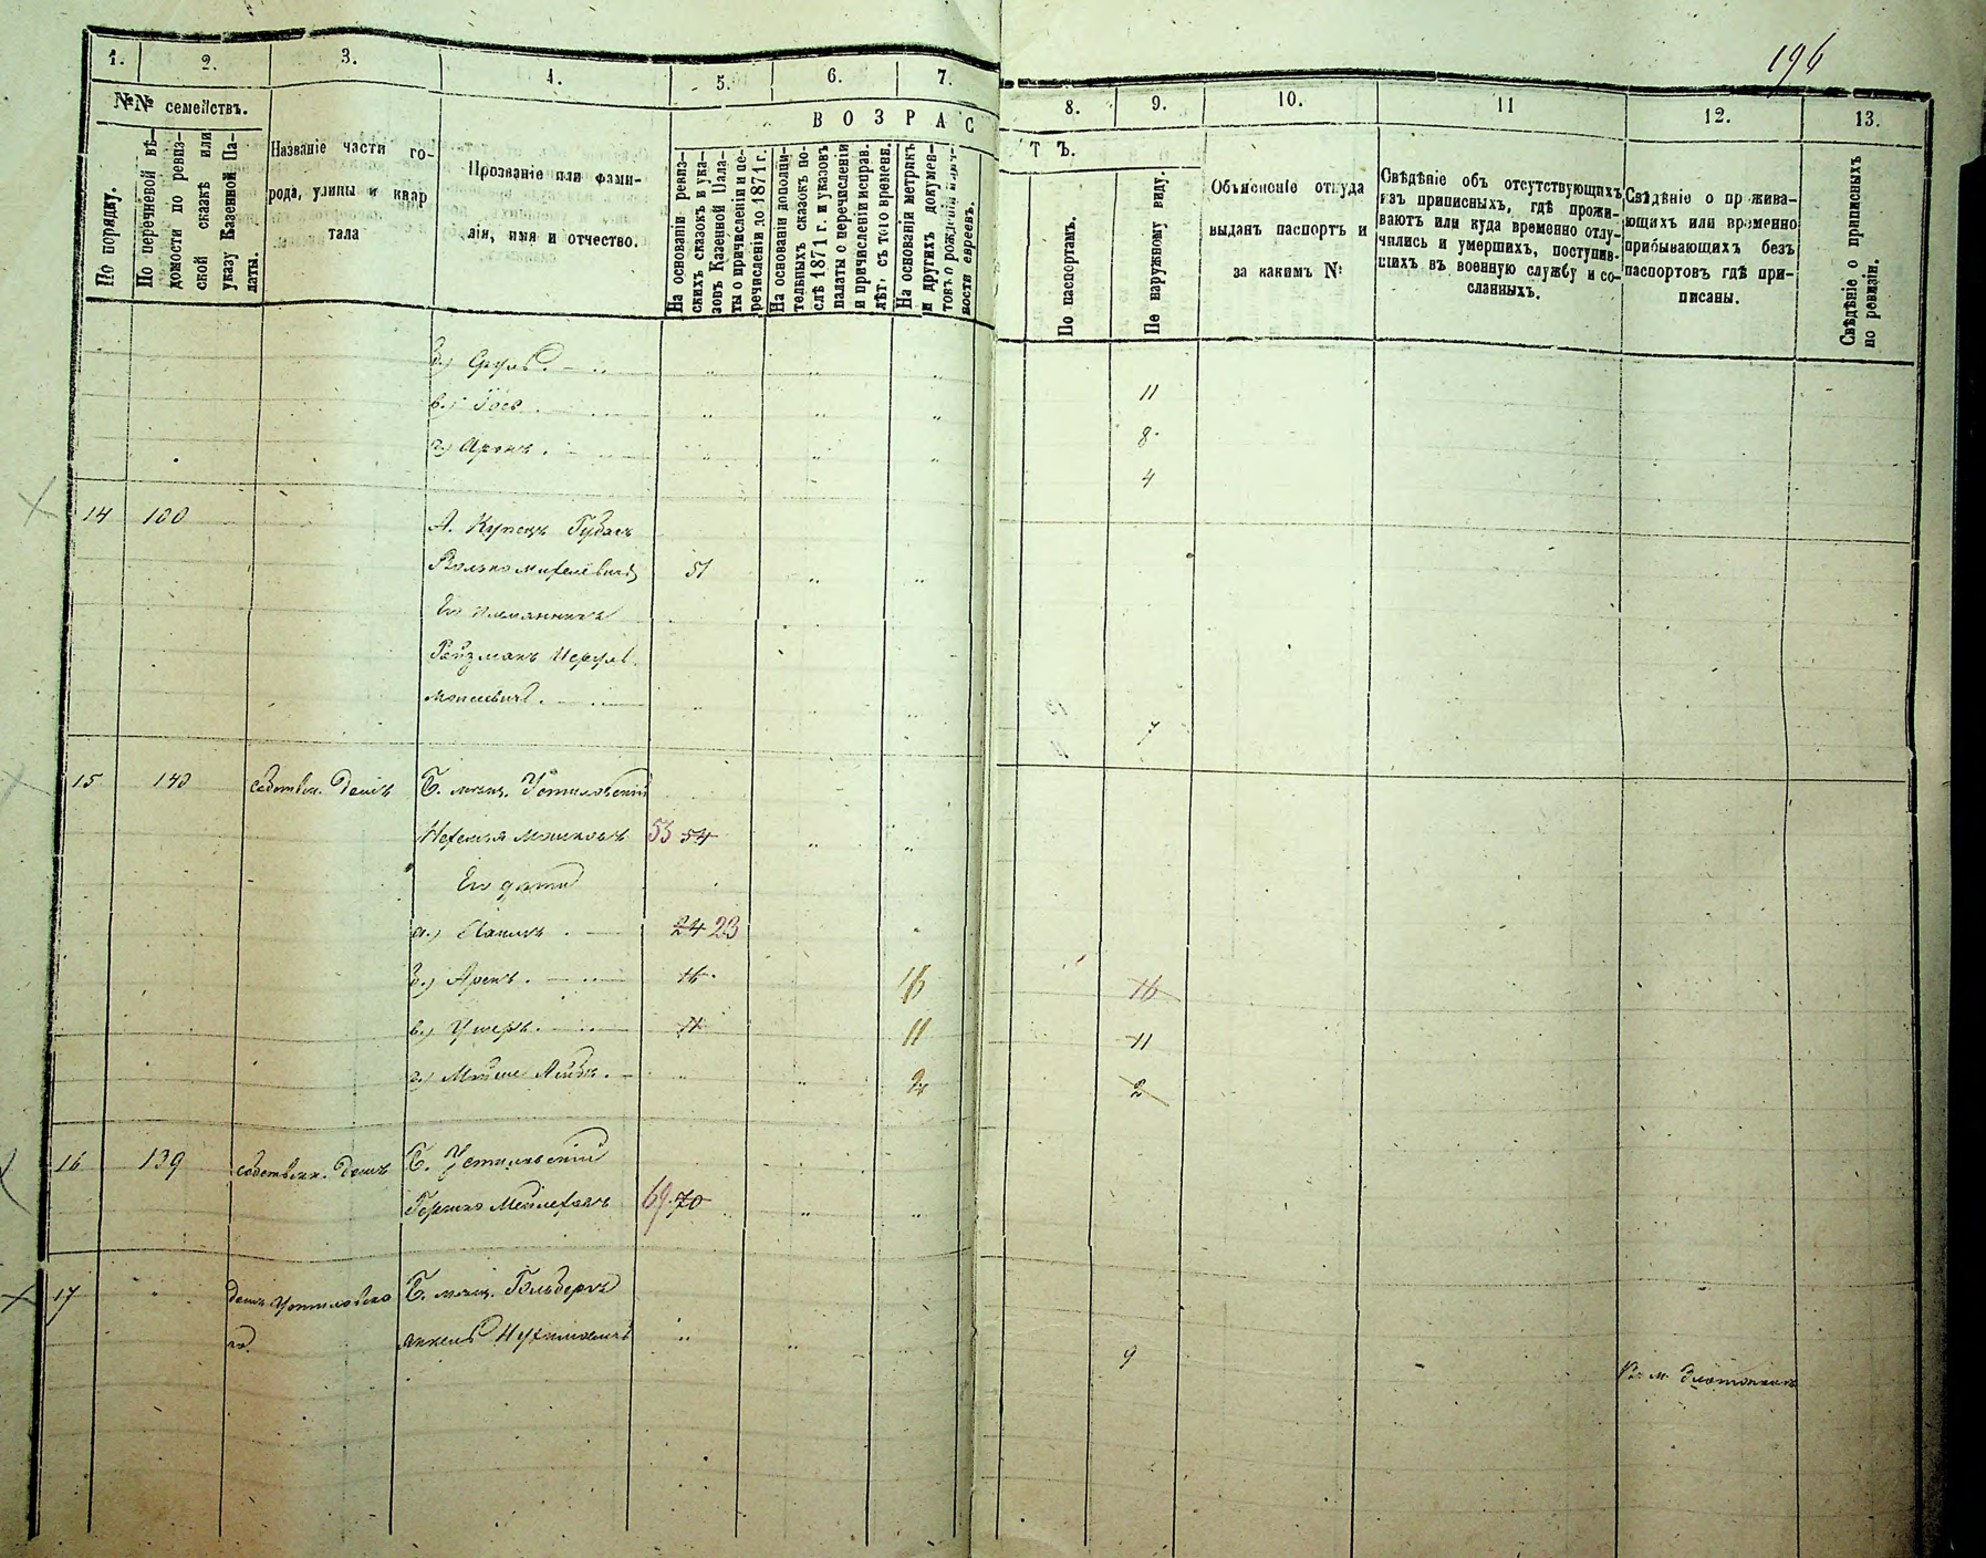 196
1.
2.
3.
4.
5.
6.
7.
8.
9.
10.
11
12.
13.
№№ семействъ.
В О З Р А С
Т Ъ.
По порядку.
По перечневой вѣ-
домости по ревиз-
ской сказкѣ или
указу Казенной Па-
латы.
Названіе части го-
рода, улицы и квар
тала
Прозваніе или фами-
лія, имя и отчество.
На основаніи ревиз-
скихъ сказокъ и ука-
зовъ Казенной Пала-
ты о причисленіи и пе-
речисленіи до 1871 г.
На основаніи дополни-
тельныхъ сказокъ по-
слѣ 1871 г. и указовъ
палаты о перечисленіи
и причисленіи исправ.
лѣт, съ того времени.
На основаніи метрикъ
и другихъ докумен-
товъ о рожденіи
вости евреевъ.
По паспортамъ.
По наружному виду.
Объясненіе откуда
выданъ паспортъ и
за какимъ №
Свѣдѣніе объ отсутствующихъ
изъ приписныхъ, гдѣ прожи-
ваютъ или куда временно отлу-
чились и умершихъ, поступив-
шихъ въ военную службу и со-
сланныхъ.
Свѣдѣніе о прожива-
ющихъ или временно
прибывающихъ безъ
паспортовъ гдѣ при-
писаны.
Свѣдѣніе о приписныхъ
по ревизіи.
б.) Сруль
11
в.) Іосъ
8
г.) Аронъ
4
14 100
А. Купецъ
51
Его племянникъ
Ройзманъ
7
15 140 собствен. домъ Б. мѣщ. Устиловскій
Нехемья Мошковъ 53 54
Его дѣти
а.) 24 23
б.) Аронъ 16 16 16
в.) Ушеръ 11 11 11
г.) Мойше Лейбъ 2 2
16 139 собственн. домъ Б. Устиловскій
Гершко 69 70
17 домъ Устиловска Б. мѣщ. Гольдберъ
го Янкель 9